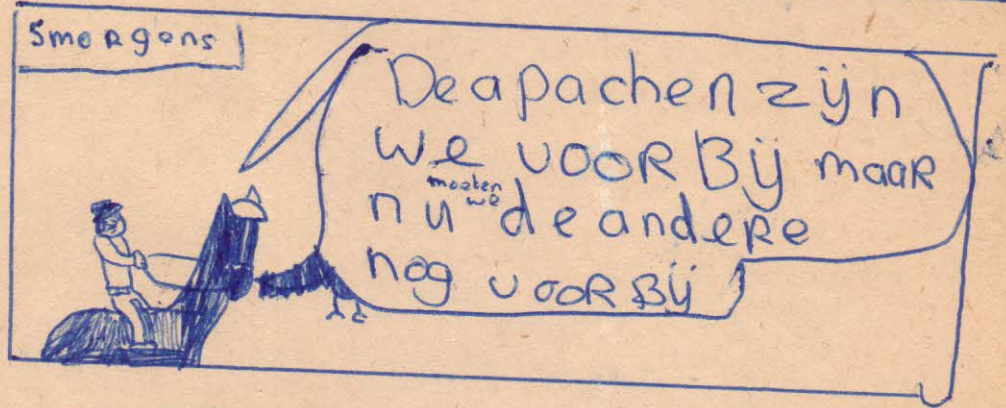 Smorgens
De apachen zijn
we voorbij maar
nu moeten we de andere
nog voorbij